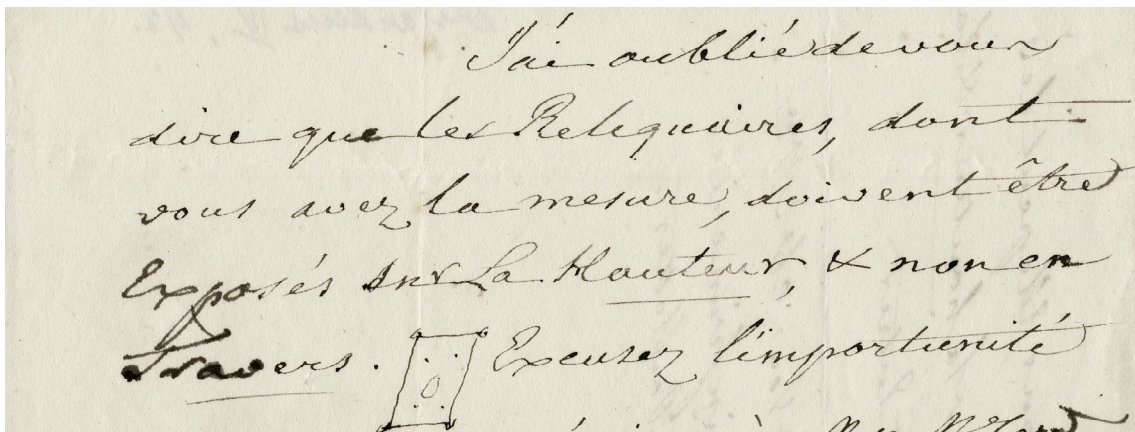 J'ai oublié de vous
dire que les Reliquaires, dont
vous avez la mesure, doivent être
Exposés sur La Hauteur, & non en
Travers. Excusez l'importunité